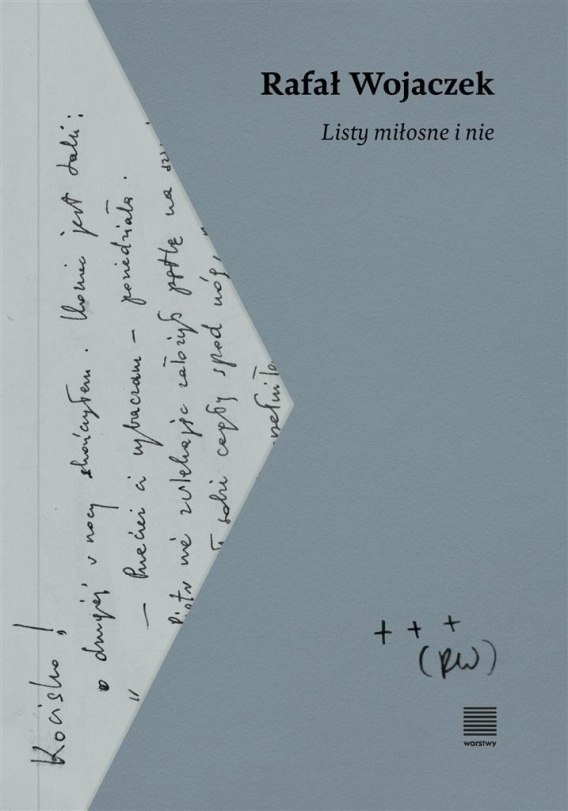 Rafał Wojaczek
Listy miłosne i nie
Kocisko!
o drugiej w nocy skończyłem. Koniec jest taki:
„ — Przecież ci wybaczam – powiedziała.
Piotr nie zwlekając założył pętlę na
sobie spod nóg,
+ + +
(RW)
warstwy